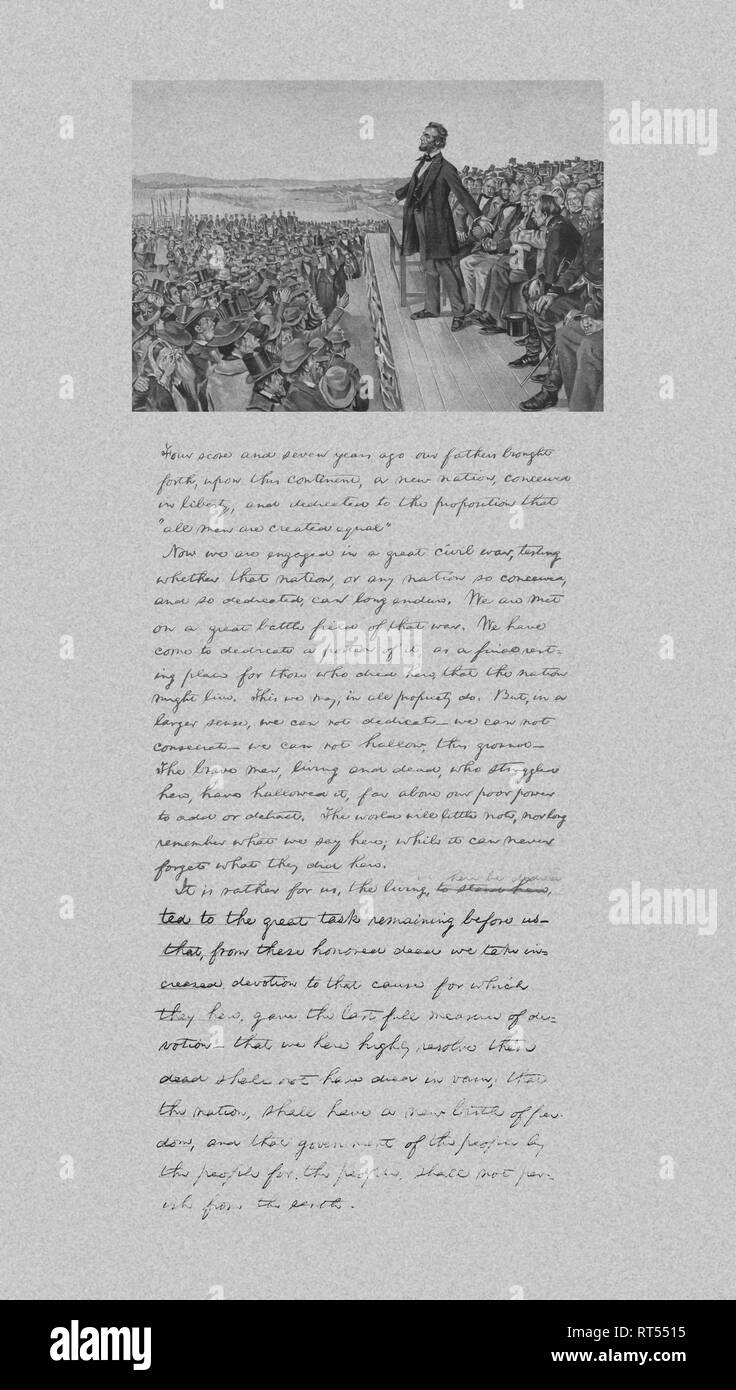 Four score and seven years ago our fathers brought
forth, upon this continent, a new nation, conceived
in liberty, and dedicated to the proposition that
"all men are created equal"
Now we are engaged in a great civil war, testing
whether that nation, or any nation so conceived,
and so dedicated, can long endure. We are met
on a great battle field of that war. We have
come to dedicate a portion of it, as a final rest-
ing place for those who died here, that the nation
might live. This we may, in all propriety do. But, in a
larger sense, we can not dedicate — we can not
consecrate — we can not hallow, this ground —
The brave men, living and dead, who struggled
here, have hallowed it, far above our poor power
to add or detract. The world will little note, nor long
remember what we say here; while it can never
forget what they did here.
It is rather for us, the living, to stand here,
we here be dedica
ted to the great task remaining before us —
that, from these honored dead we take in-
creased devotion to that cause for which
they here, gave the last full measure of de-
votion — that we here highly resolve these
dead shall not have died in vain; that
the nation, shall have a new birth of free-
dom, and that government of the people by
the people for the people, shall not per-
ish from the earth.
a alamy
alamy
Image ID: RT5515
www.alamy.com